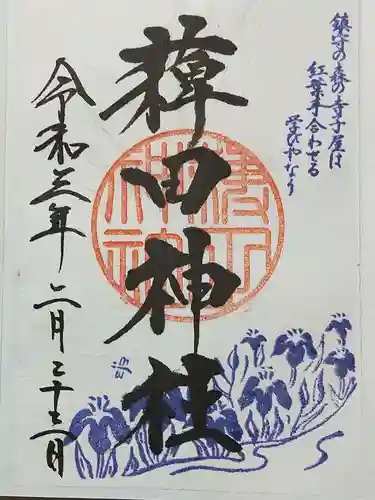 鎮守の森の寺子屋は
紅葉手合わせる
学びやなり
薭田神社
令和三年二月二十二日